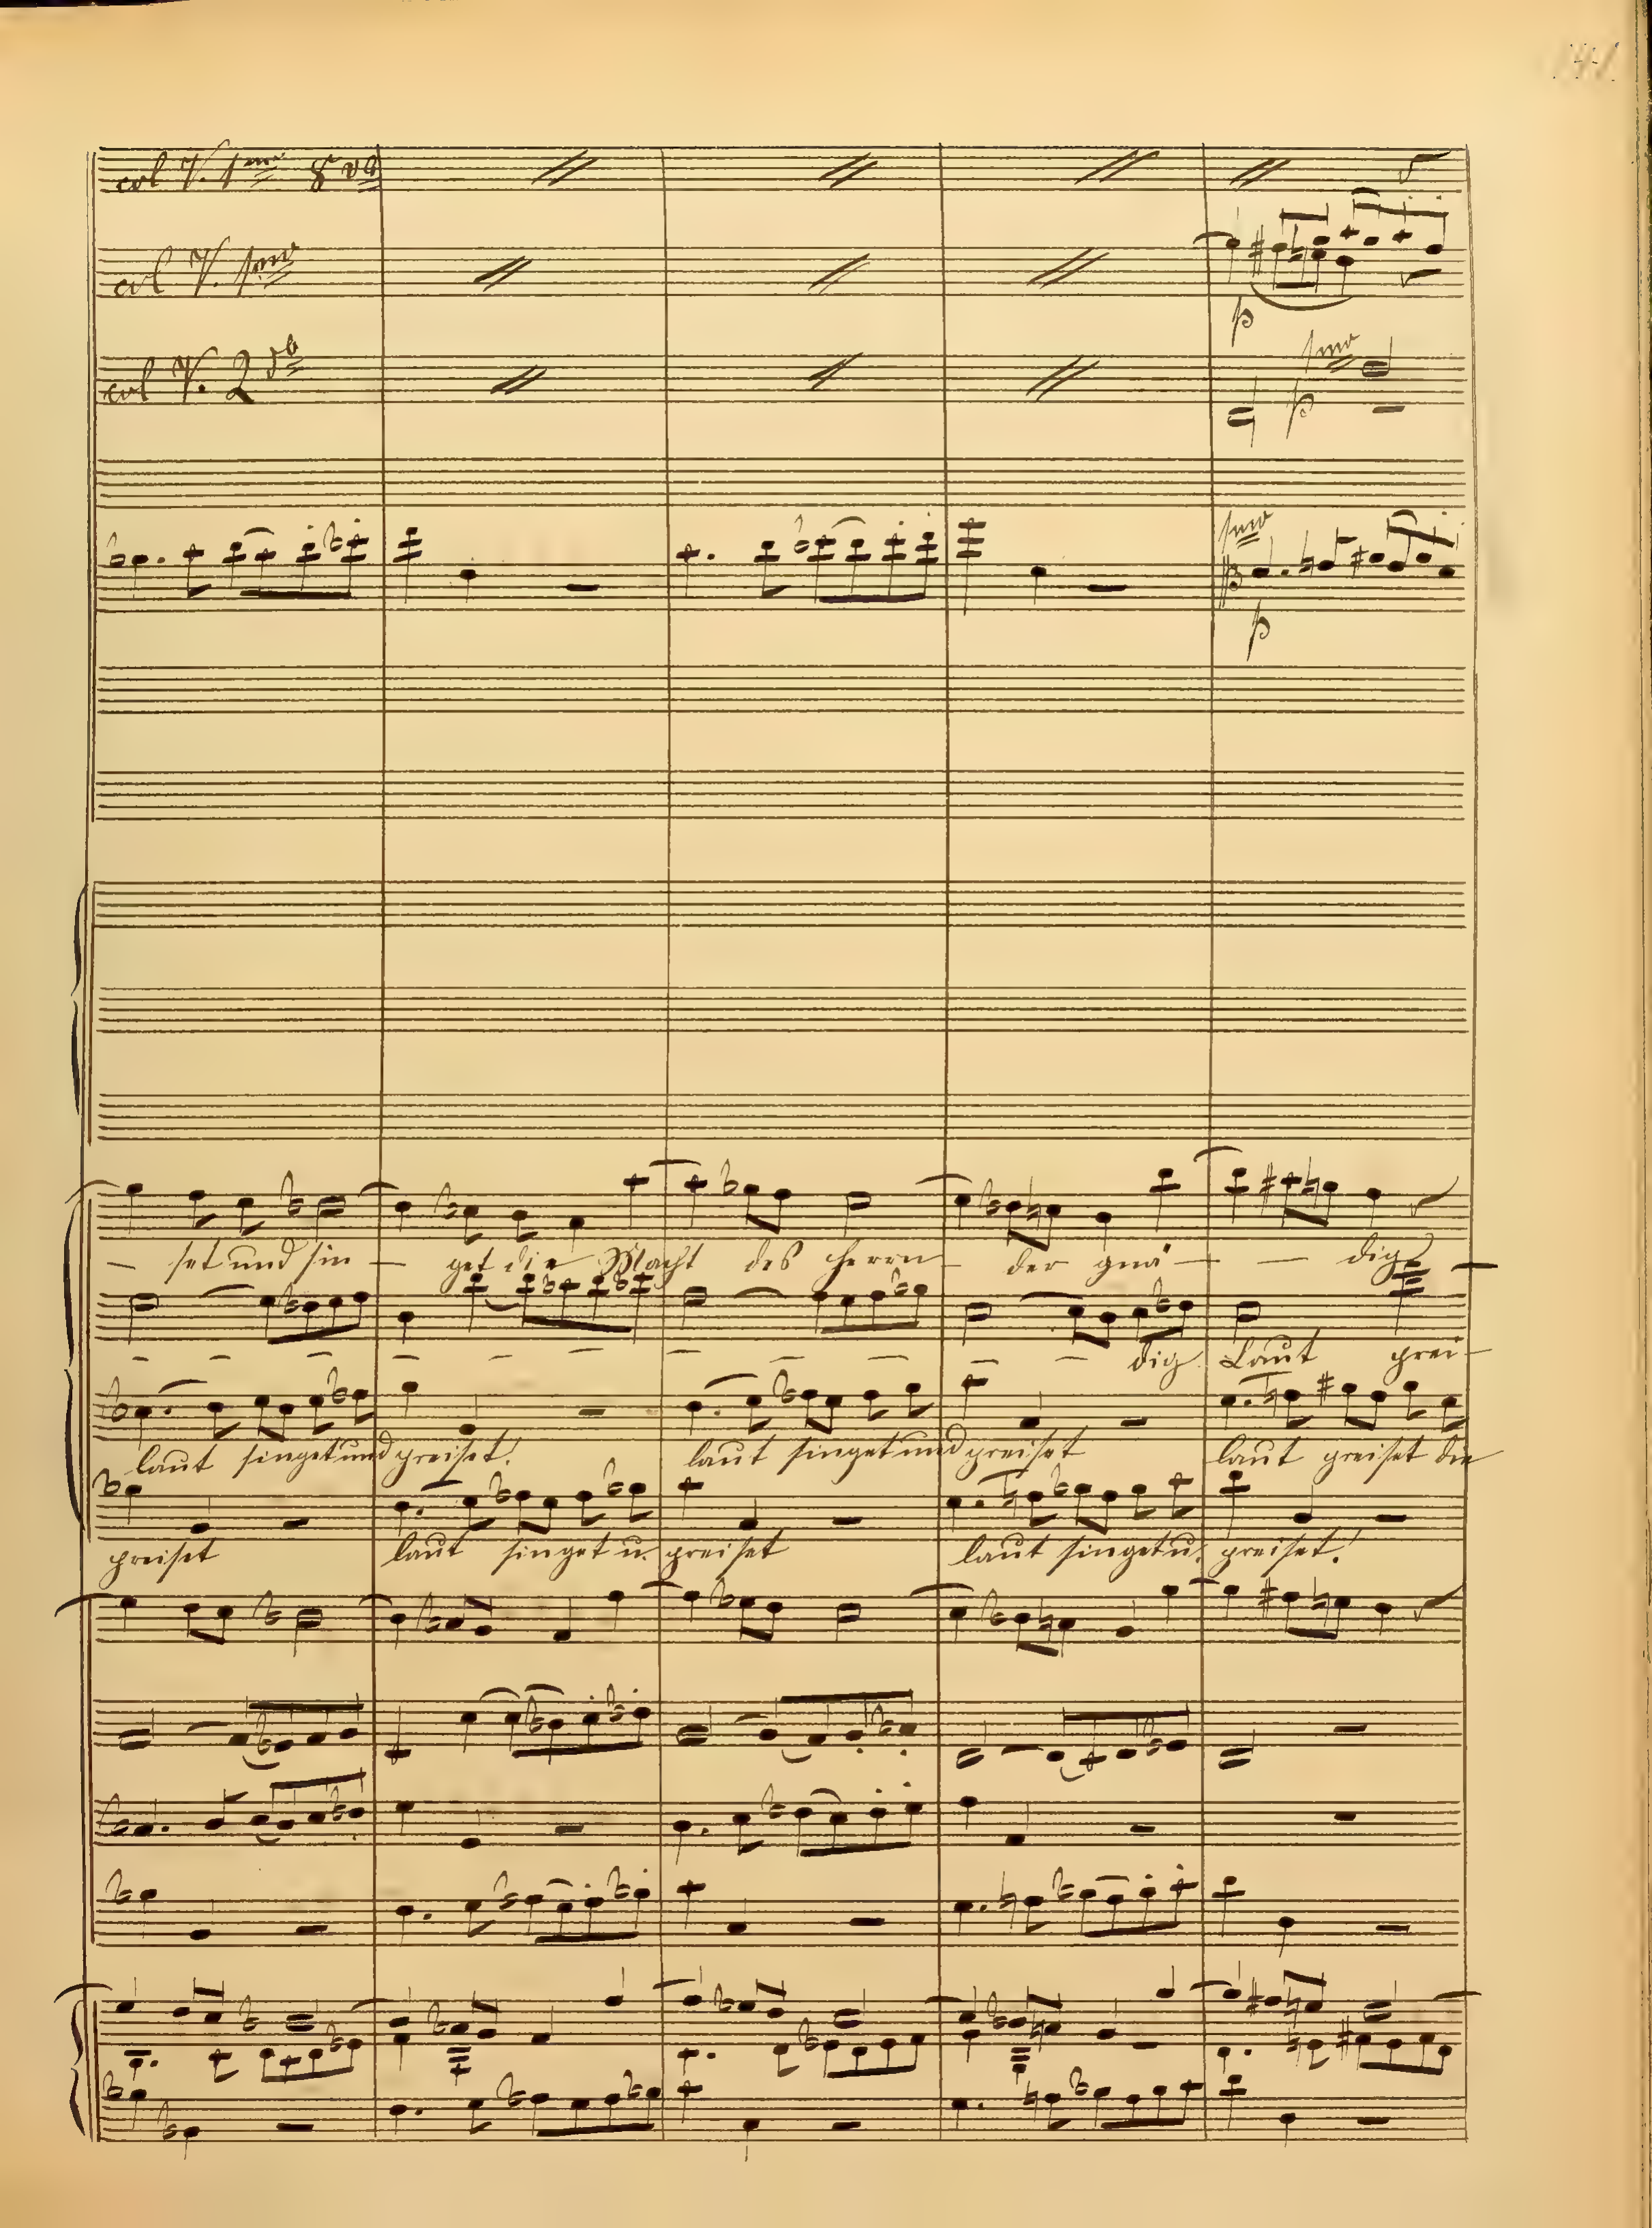 col V. 1mo 8va
col V. 1mo
p
col V. 2do
1mo
p
1mo
p
— set und sin — get die Macht des Herrn — der gnä — — dig
— — — — — — — — — — — dig. Laut prei-
laut singet und preiset! laut singet und preiset laut preiset die
preiset laut singet u. preiset laut singet u. preiset!